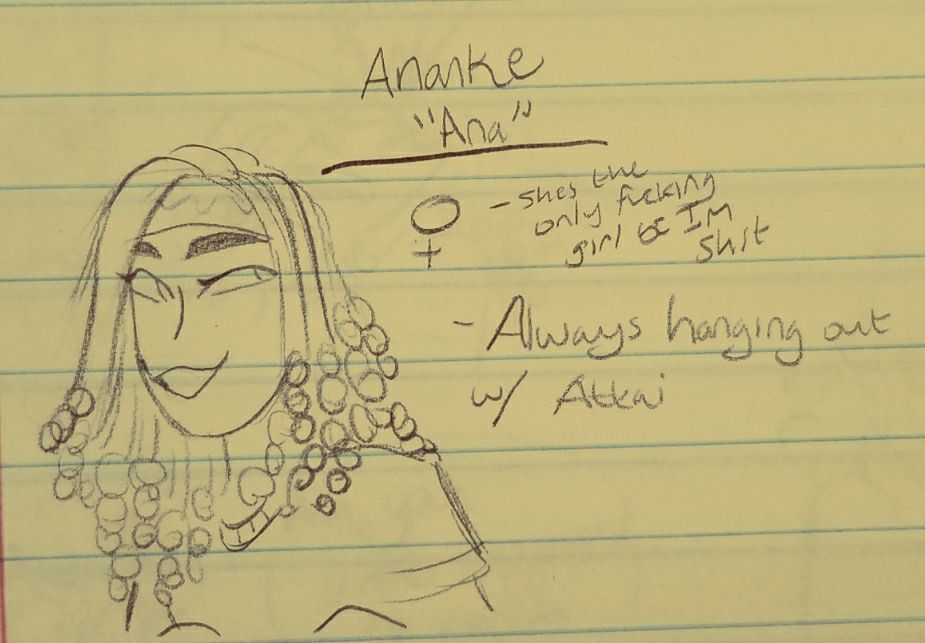 Ananke
"Ana"
♀ - shes the
only fucking
girl bc Im
shit
- Always hanging out
w/ Attai